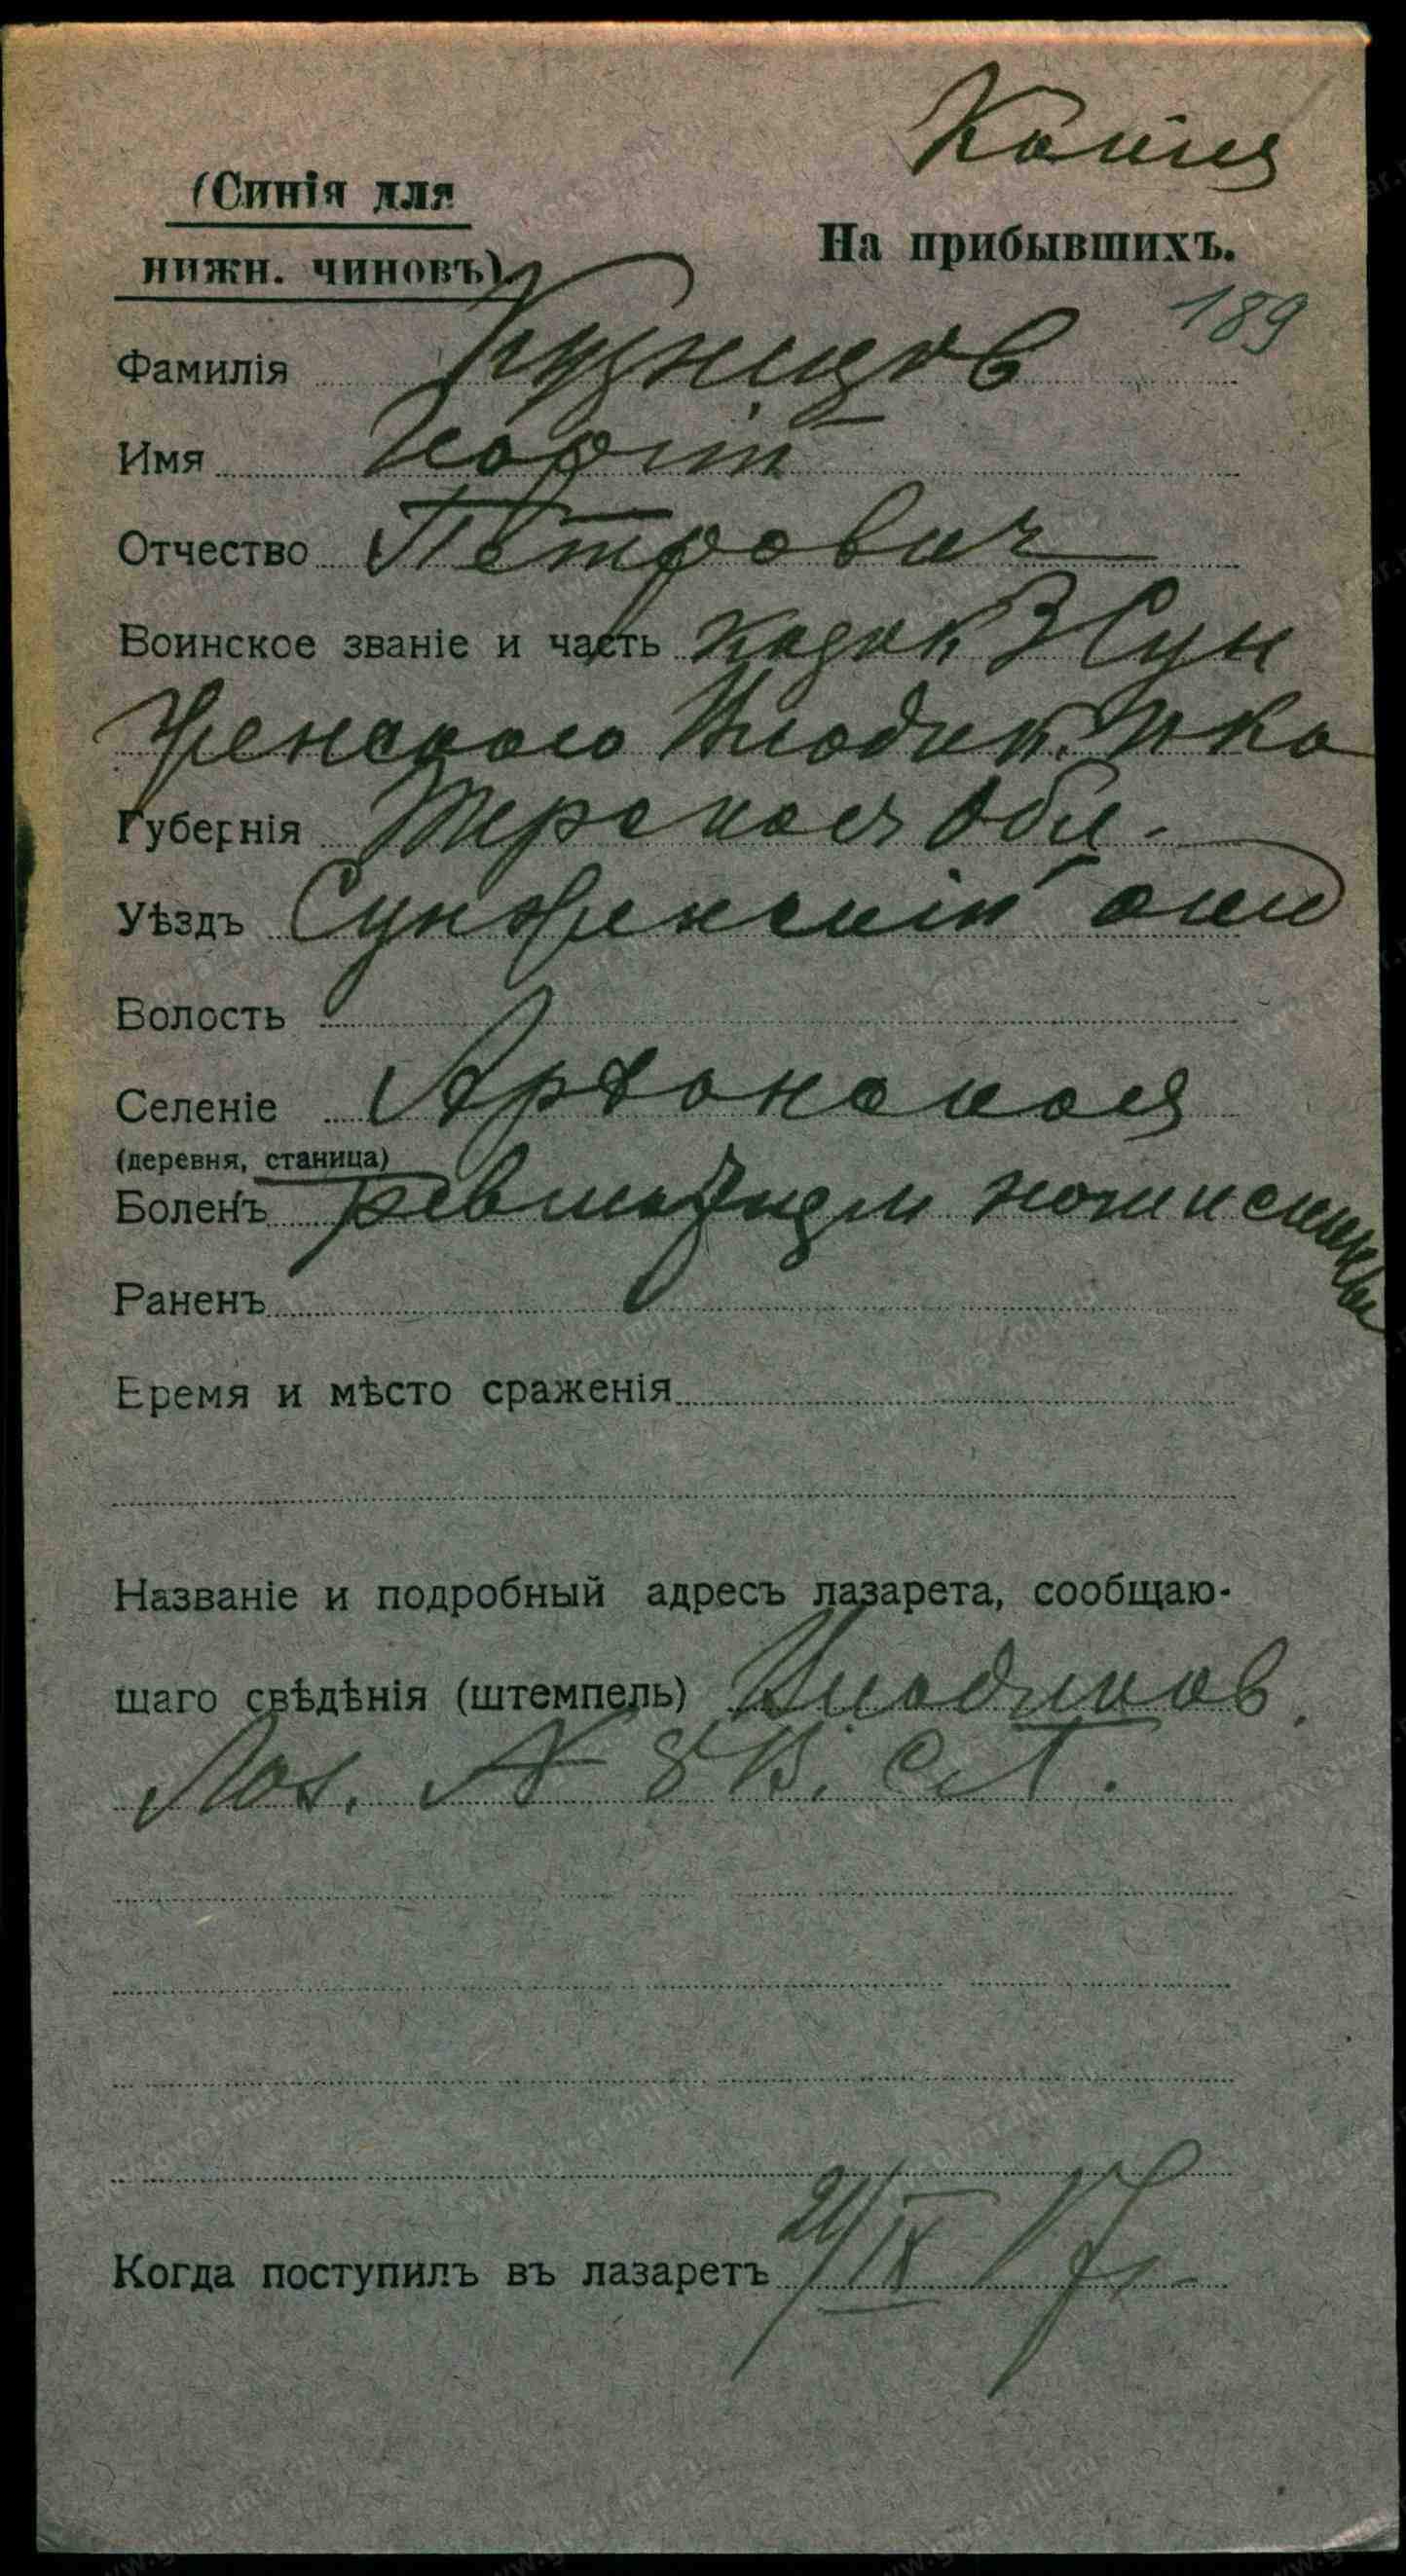 Копия
(Синія для
нижн. чиновъ).
На прибывшихъ.
189
Фамилія Кузнецов
Имя
Отчество Петрович
Воинское званіе и часть Казак 3 Сун
женского Владик. п-ка
Губернія Терская Обл.
Уѣздъ Сунженский отд
Волость
Селеніе Ардонская
(деревня, станица)
Боленъ ревматизм ноги и спины
Раненъ
Время и мѣсто сраженія
Названіе и подробный адресъ лазарета, сообщаю-
щаго свѣдѣнія (штемпель) Владиков.
Лаз. № 8 В. С.
Когда поступилъ въ лазаретъ 21/IX 17 г.